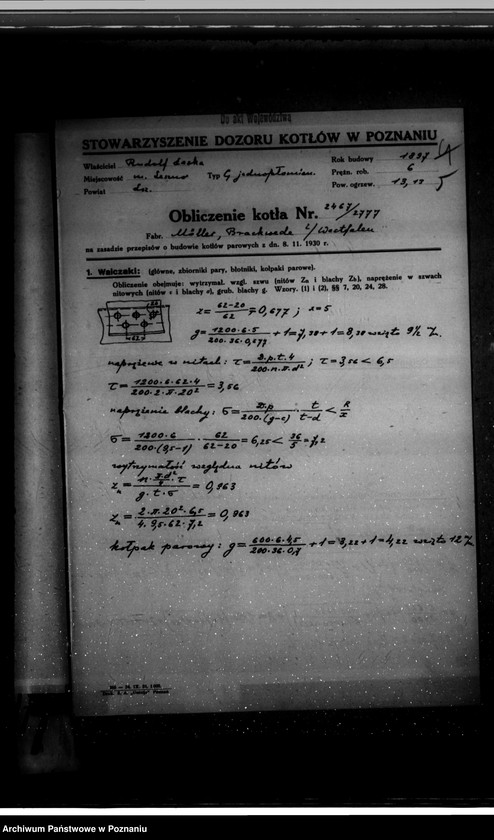 Do akt Województwa
STOWARZYSZENIE DOZORU KOTŁÓW W POZNANIU
Właściciel Rudolf
Rok budowy 1897
Miejscowość m. Typ G jednopłomien.
Prężn. rob. 6
Powiat
Pow. ogrzew. 13,13
Obliczenie kotła Nr. 2467/2777
Fabr. Müller, Brackwede i/Westfalen
na zasadzie przepisów o budowie kotłów parowych z dn. 8. 11. 1930 r.
1. Walczaki: (główne, zbiorniki pary, błotniki, kołpaki parowe).
Obliczenie obejmuje: wytrzymał. wzgl. szwu (nitów Zn i blachy Zb), naprężenie w szwach
nitowych (nitów τ i blachy σ), grub. blachy g. Wzory. (1) i (2), §§ 7, 20, 24, 28.
z = 62-20 / 62 = 0,677; x = 5
g = 1200·6·5 / 200·36·0,677 + 1 = 7,38 + 1 = 8,38 wzięto 9½
naprężenie w nitach: τ = D.p.t.4 / 200.n.π.d²; τ = 3,56 < 6,5
τ = 1200·6·62·4 / 200·2·π·20² = 3,56
naprężenie blachy: σ = D.p / 200.(g-c) · t / t-d < K / x
σ = 1200·6 / 200·(9,5-1) · 62 / 62-20 = 6,25 < 36/5 = 7,2
wytrzymałość względna nitów
zn = n·π·d²/4·τ / g.t.σ = 0,963
zn = 2·π·20²·6,5 / 4·9,5·62·7,2 = 0,963
kołpak parowy: g = 600·6·4,5 / 200·36·0,7 + 1 = 3,22 + 1 = 4,22 wzięto 12
Archiwum Państwowe w Poznaniu